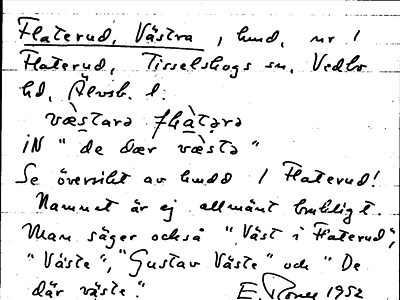 Flaterud, Västra, hmd. nr 1
Flaterud, Tisselskogs sn, Vedbo
hd, Älvsb. l.
væ̀stara flàtərə
iN "de dær væ̀stə"
Se översikt av hmdd / Flaterud!
Namnet är ej allmänt brukligt.
Man säger också "Väst i Flaterud",
"Väste", "Gustav Väste" och "De
där väste".
E. 1952